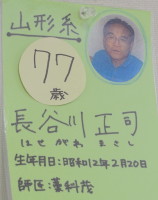 山形系
77
歳
長谷川 正司
はせがわ まさし
生年月日:昭和12年2月20日
師匠:蓬科茂